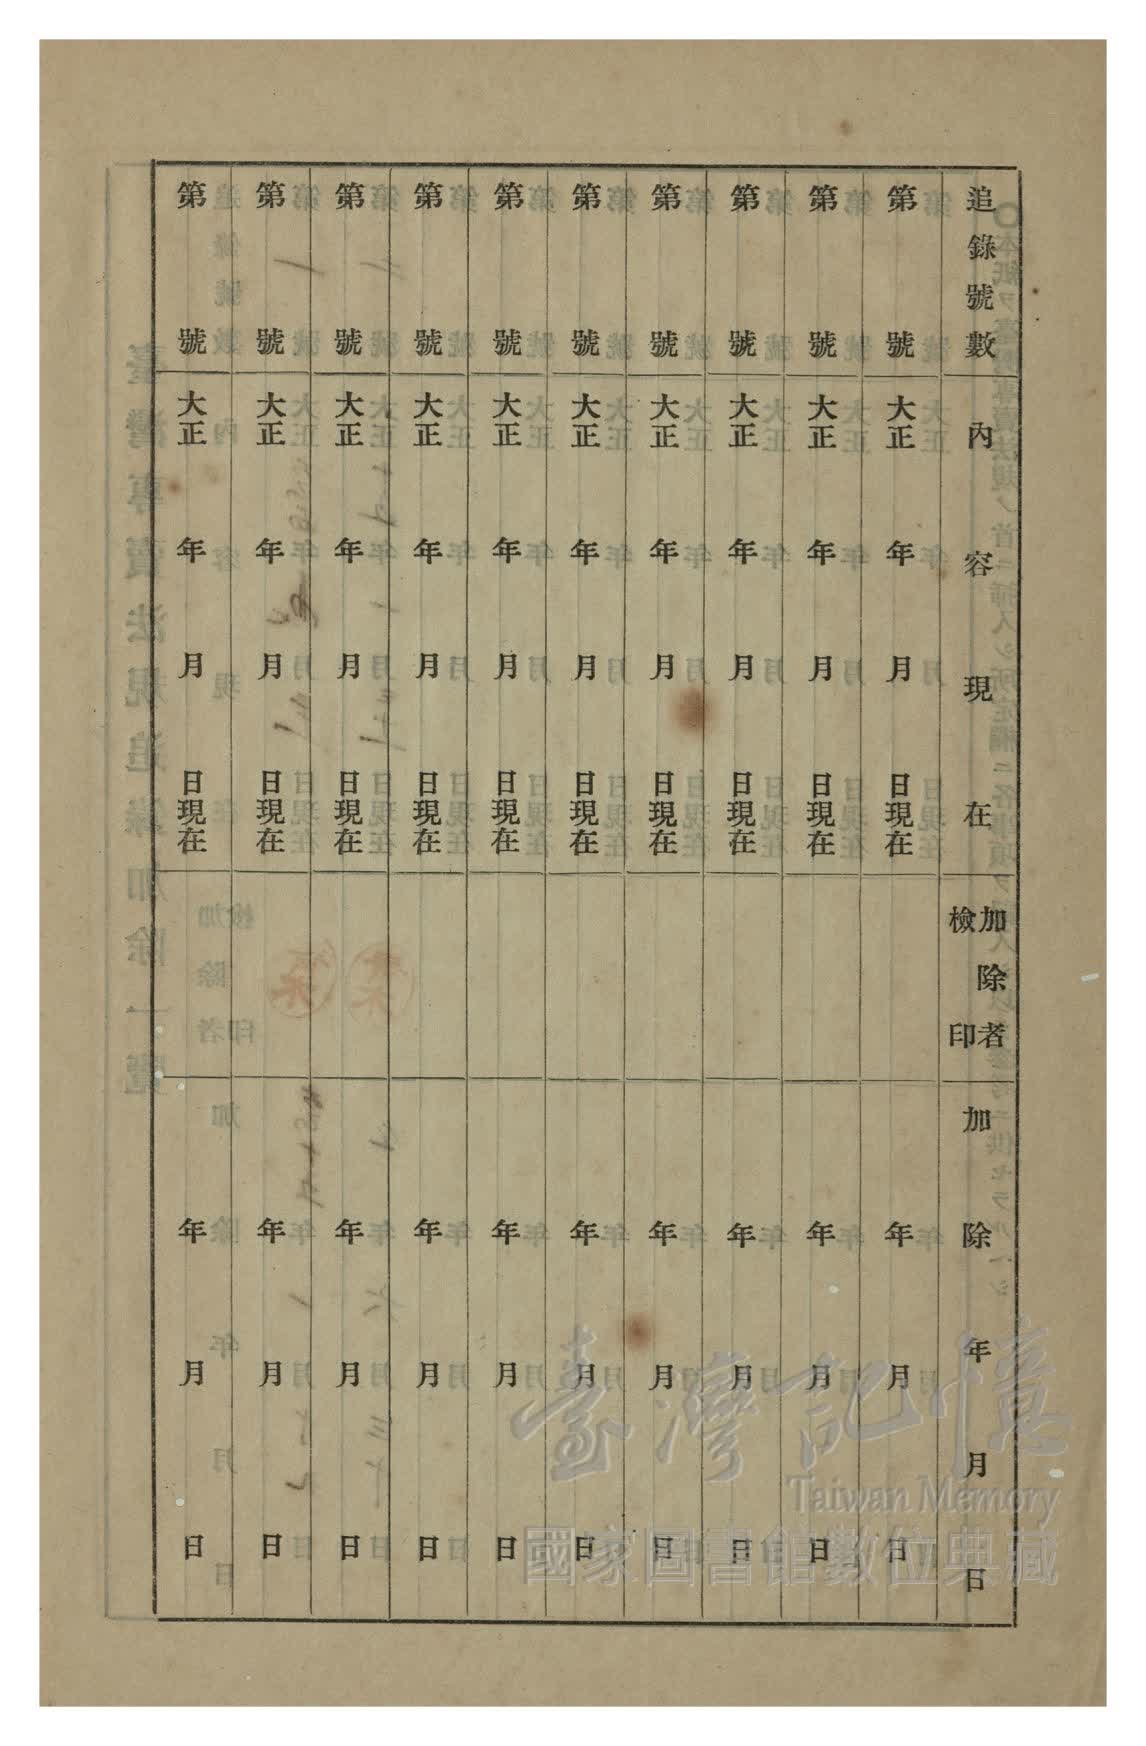 追錄號數
內容現在
加除者
檢印
加除年月日
第 號
大正 年 月 日現在
年 月 日
第 號
大正 年 月 日現在
年 月 日
第 號
大正 年 月 日現在
年 月 日
第 號
大正 年 月 日現在
年 月 日
第 號
大正 年 月 日現在
年 月 日
第 號
大正 年 月 日現在
年 月 日
第 號
大正 年 月 日現在
年 月 日
第 號
大正 年 月 日現在
年 月 日
第 號
大正 年 月 日現在
年 月 日
第 號
大正 年 月 日現在
年 月 日
臺灣記憶
Taiwan Memory
國家圖書館數位典藏